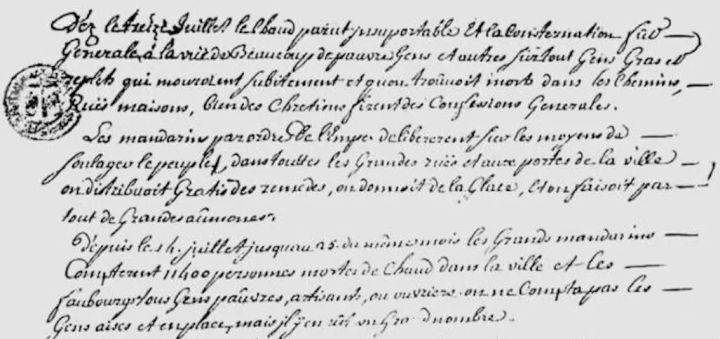 Dez le treize Juillet le Chaud parut insuportable Et la Consternation fut
Generale, à la vuë de Beaucoup de pauvre Gens et autres surtout Gens Gras et
replets qui mouroient subitement et qu'on trouvoit morts dans les Chemins,
Ruës maisons, bien des Chretiens firent des Confessions Generales.
Les mandarins par ordre de l'Emp.r delibererent sur les moyens de
soulager le peuple, dans touttes les Grandes ruës et aux portes de la ville
on distribuoit Gratis des remedes, on donnoit de la Glace, et on faisoit par
tout de Grandes aumones.
Depuis le 14. juillet jusquau 25. du même mois les Grands mandarins
Compterent 11400 personnes mortes de Chaud dans la ville et les
faubourgs tous Gens pauvres, artisants, ou ouvriers. on ne Compta pas les
Gens aisés et en place, mais il y en eût un Grand nombre.